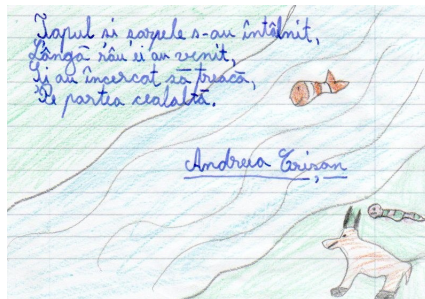 Țapul si sarpele s-au întâlnit,
Lângă râu ei au venit,
Și au încercat să treacă,
Pe partea cealaltă.
Andreia Crișan